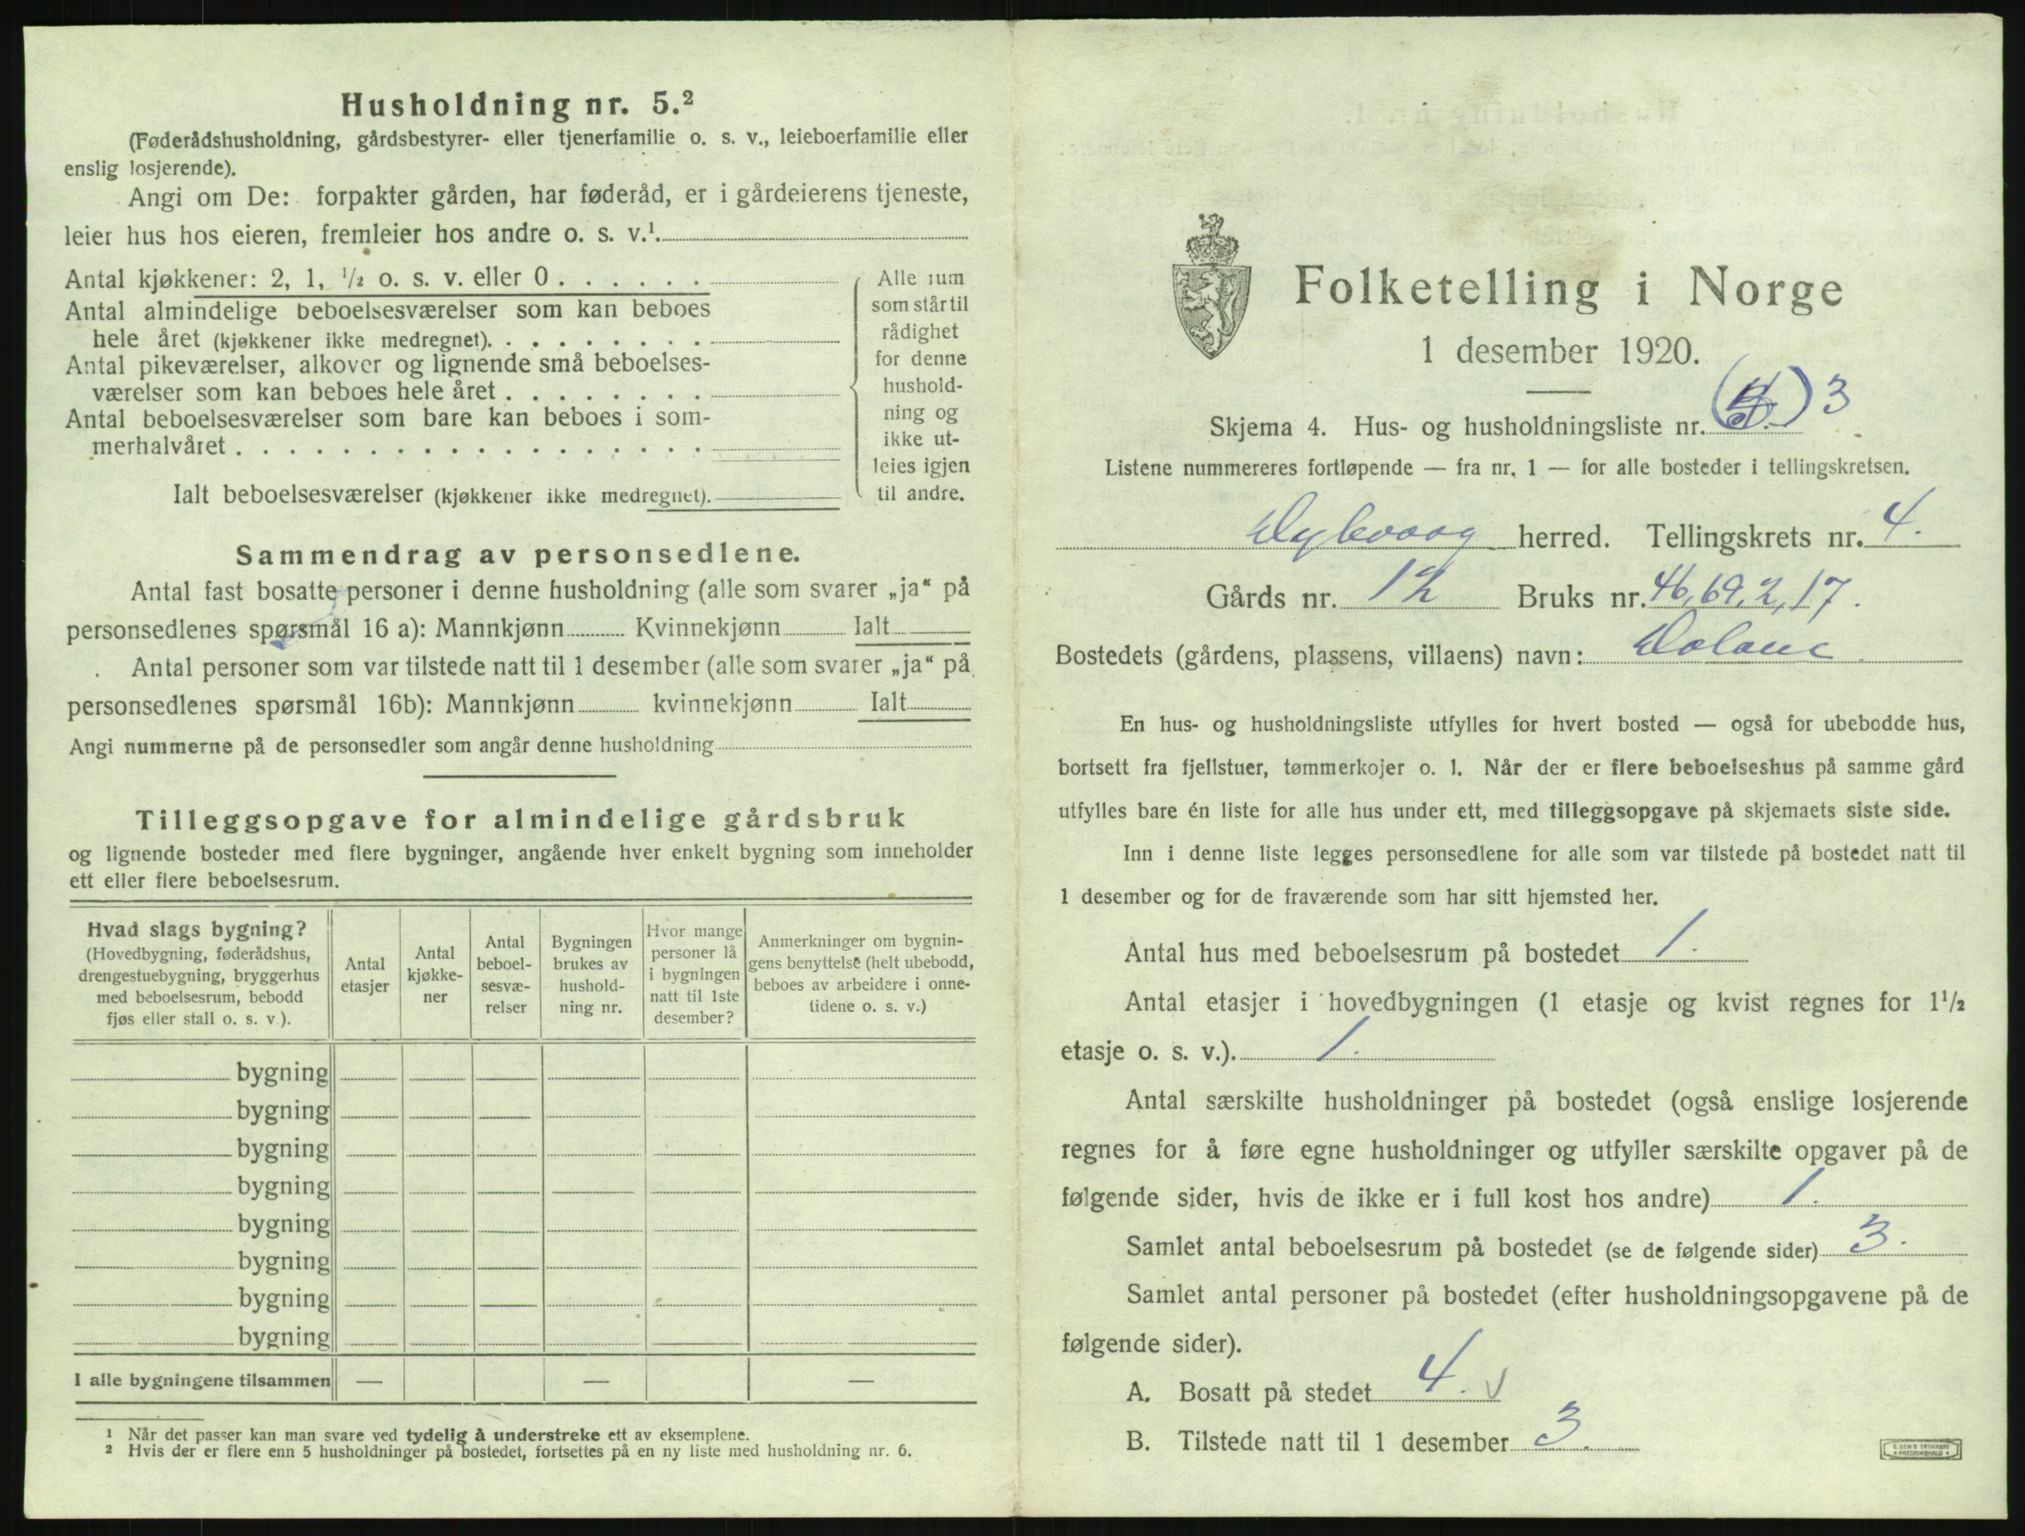 Husholdning nr. 5.²
(Føderådshusholdning, gårdsbestyrer- eller tjenerfamilie o. s. v., leieboerfamilie eller
enslig losjerende).
Angi om De: forpakter gården, har føderåd, er i gårdeierens tjeneste,
leier hus hos eieren, fremleier hos andre o. s. v.¹
Antal kjøkkener: 2, 1, ½ o. s. v. eller 0 . . . . . .
Antal almindelige beboelsesværelser som kan beboes
hele året (kjøkkener ikke medregnet). . . . . . . . .
Antal pikeværelser, alkover og lignende små beboelses-
værelser som kan beboes hele året . . . . . . . .
Antal beboelsesværelser som bare kan beboes i som-
merhalvåret . . . . . . . . . . . . . . . . . .
Ialt beboelsesværelser (kjøkkener ikke medregnet).
Alle rum
som står til
rådighet
for denne
hushold-
ning og
ikke ut-
leies igjen
til andre.
Sammendrag av personsedlene.
Antal fast bosatte personer i denne husholdning (alle som svarer „ja“ på
personsedlenes spørsmål 16 a): Mannkjønn Kvinnekjønn Ialt
Antal personer som var tilstede natt til 1 desember (alle som svarer „ja“ på
personsedlenes spørsmål 16b): Mannkjønn kvinnekjønn Ialt
Angi nummerne på de personsedler som angår denne husholdning
Tilleggsopgave for almindelige gårdsbruk
og lignende bosteder med flere bygninger, angående hver enkelt bygning som inneholder
ett eller flere beboelsesrum.
Hvad slags bygning?
(Hovedbygning, føderådshus,
drengestuebygning, bryggerhus
med beboelsesrum, bebodd
fjøs eller stall o. s. v.).
Antal
etasjer
Antal
kjøkke-
ner
Antal
beboel-
sesvæ-
relser
Bygningen
brukes av
hushold-
ning nr.
Hvor mange
personer lå
i bygningen
natt til 1ste
desember?
Anmerkninger om bygnin-
gens benyttelse (helt ubebodd,
beboes av arbeidere i onne-
tidene o. s. v.)
bygning
bygning
bygning
bygning
bygning
bygning
bygning
bygning
I alle bygningene tilsammen — — —
¹ Når det passer kan man svare ved tydelig å understreke ett av eksemplene.
² Hvis der er flere enn 5 husholdninger på bostedet, fortsettes på en ny liste med husholdning nr. 6.
Folketelling i Norge
1 desember 1920.
Skjema 4. Hus- og husholdningsliste nr. ( ) 3
Listene nummereres fortløpende — fra nr. 1 — for alle bosteder i tellingskretsen.
Dybvaag herred. Tellingskrets nr. 4.
Gårds nr. 12 Bruks nr. 46, 69, 2, 17.
Bostedets (gårdens, plassens, villaens) navn: Dalane
En hus- og husholdningsliste utfylles for hvert bosted — også for ubebodde hus,
bortsett fra fjellstuer, tømmerkojer o. l. Når der er flere beboelseshus på samme gård
utfylles bare én liste for alle hus under ett, med tilleggsopgave på skjemaets siste side.
Inn i denne liste legges personsedlene for alle som var tilstede på bostedet natt til
1 desember og for de fraværende som har sitt hjemsted her.
Antal hus med beboelsesrum på bostedet 1.
Antal etasjer i hovedbygningen (1 etasje og kvist regnes for 1½
etasje o. s. v.). 1.
Antal særskilte husholdninger på bostedet (også enslige losjerende
regnes for å føre egne husholdninger og utfyller særskilte opgaver på de
følgende sider, hvis de ikke er i full kost hos andre) 1.
Samlet antal beboelsesrum på bostedet (se de følgende sider) 3.
Samlet antal personer på bostedet (efter husholdningsopgavene på de
følgende sider).
A. Bosatt på stedet 4. v
B. Tilstede natt til 1 desember 3.